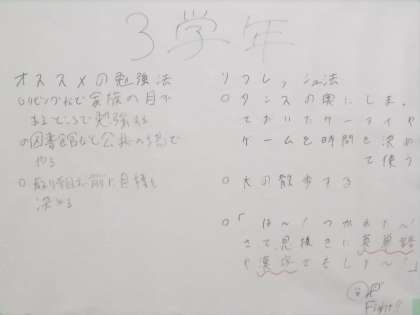 3学年
オススメの勉強法
○リビングなど家族の目が
あるところで勉強する
○図書館など公共の場で
やる
○取り組む前に目標を
決める
リフレッシュ法
○タンスの奥にしまっ
ておいたゲーティや
ゲームを時間を決め
て使う
○犬の散歩する
○「は〜!つかれた〜!
さて見様きに英単語
や漢字でもしよ〜!」
Fight!!